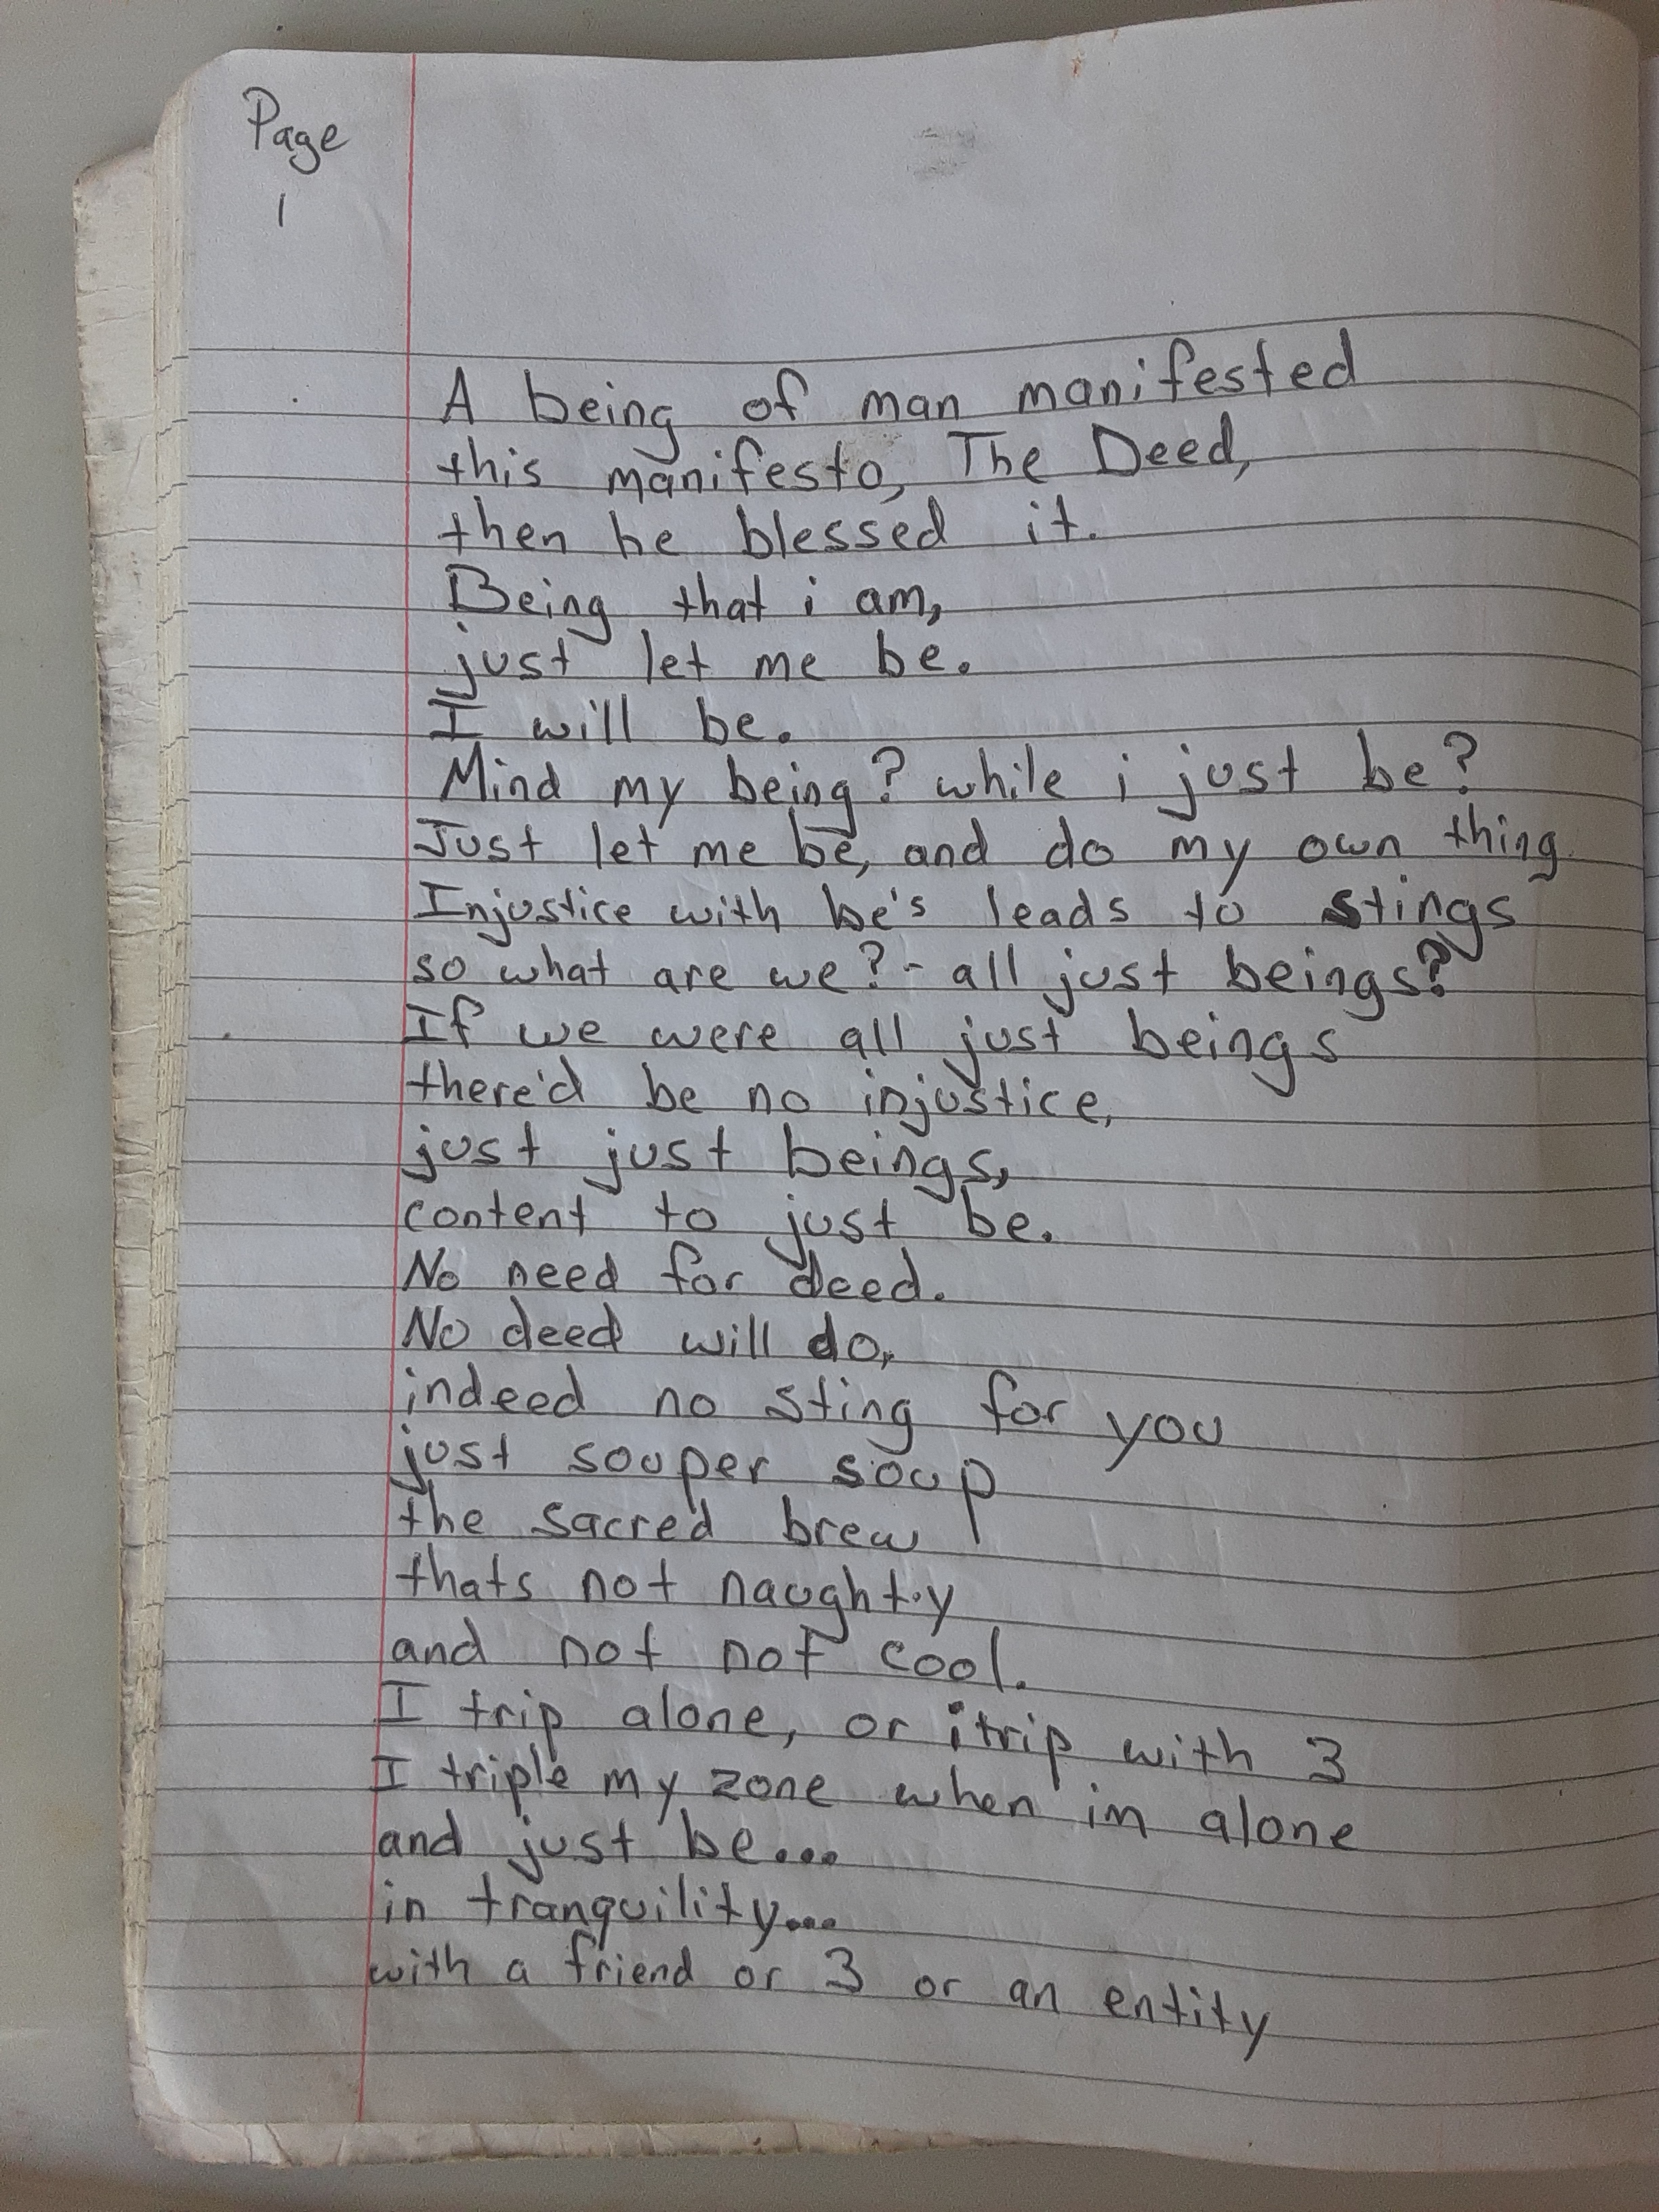 Page
1
A being of man manifested
this manifesto, The Deed,
then he blessed it.
Being that i am,
just let me be.
I will be.
Mind my being? while i just be?
Just let me be, and do my own thing
Injustice with be's leads to stings
so what are we? - all just beings?
If we were all just beings
there'd be no injustice,
just just beings,
content to just be.
No need for deed.
No deed will do,
indeed no sting for you
just souper soup
the sacred brew
thats not naughty
and not not cool.
I trip alone, or i trip with 3
I triple my zone when im alone
and just be...
in tranquility...
with a friend or 3 or an entity